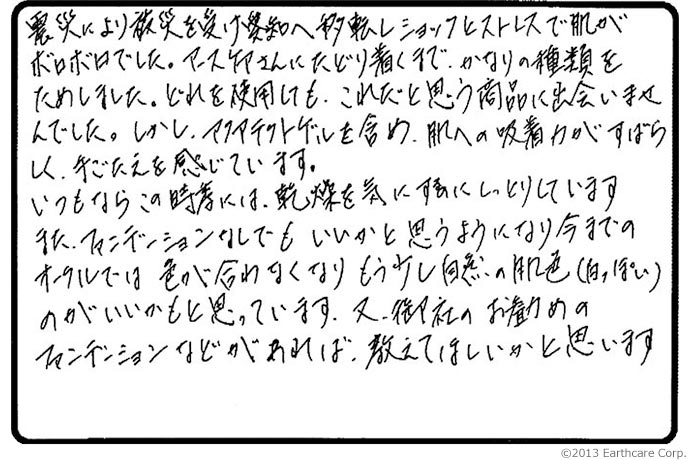 震災により被災を受け愛知へ移転しショックとストレスで肌が
ボロボロでした。アースケアさんにたどり着くまで、かなりの種類を
ためしました。どれを使用しても、これだと思う商品に出会いませ
んでした。しかし、アクアテクトゲルを含め、肌への吸着力がすばら
しく、手ごたえを感じています。
いつもならこの時季には、乾燥を気にするにしっとりしています
また、ファンデーションなしでも いいかと思うようになり今までの
オークルでは 色が合わなくなり もう少し自然の肌色(白っぽい)
のがいいかもと思っています、又、御社のお勧めの
ファンデーションなどがあれば、教えてほしいかと思います
©2013 Earthcare Corp.